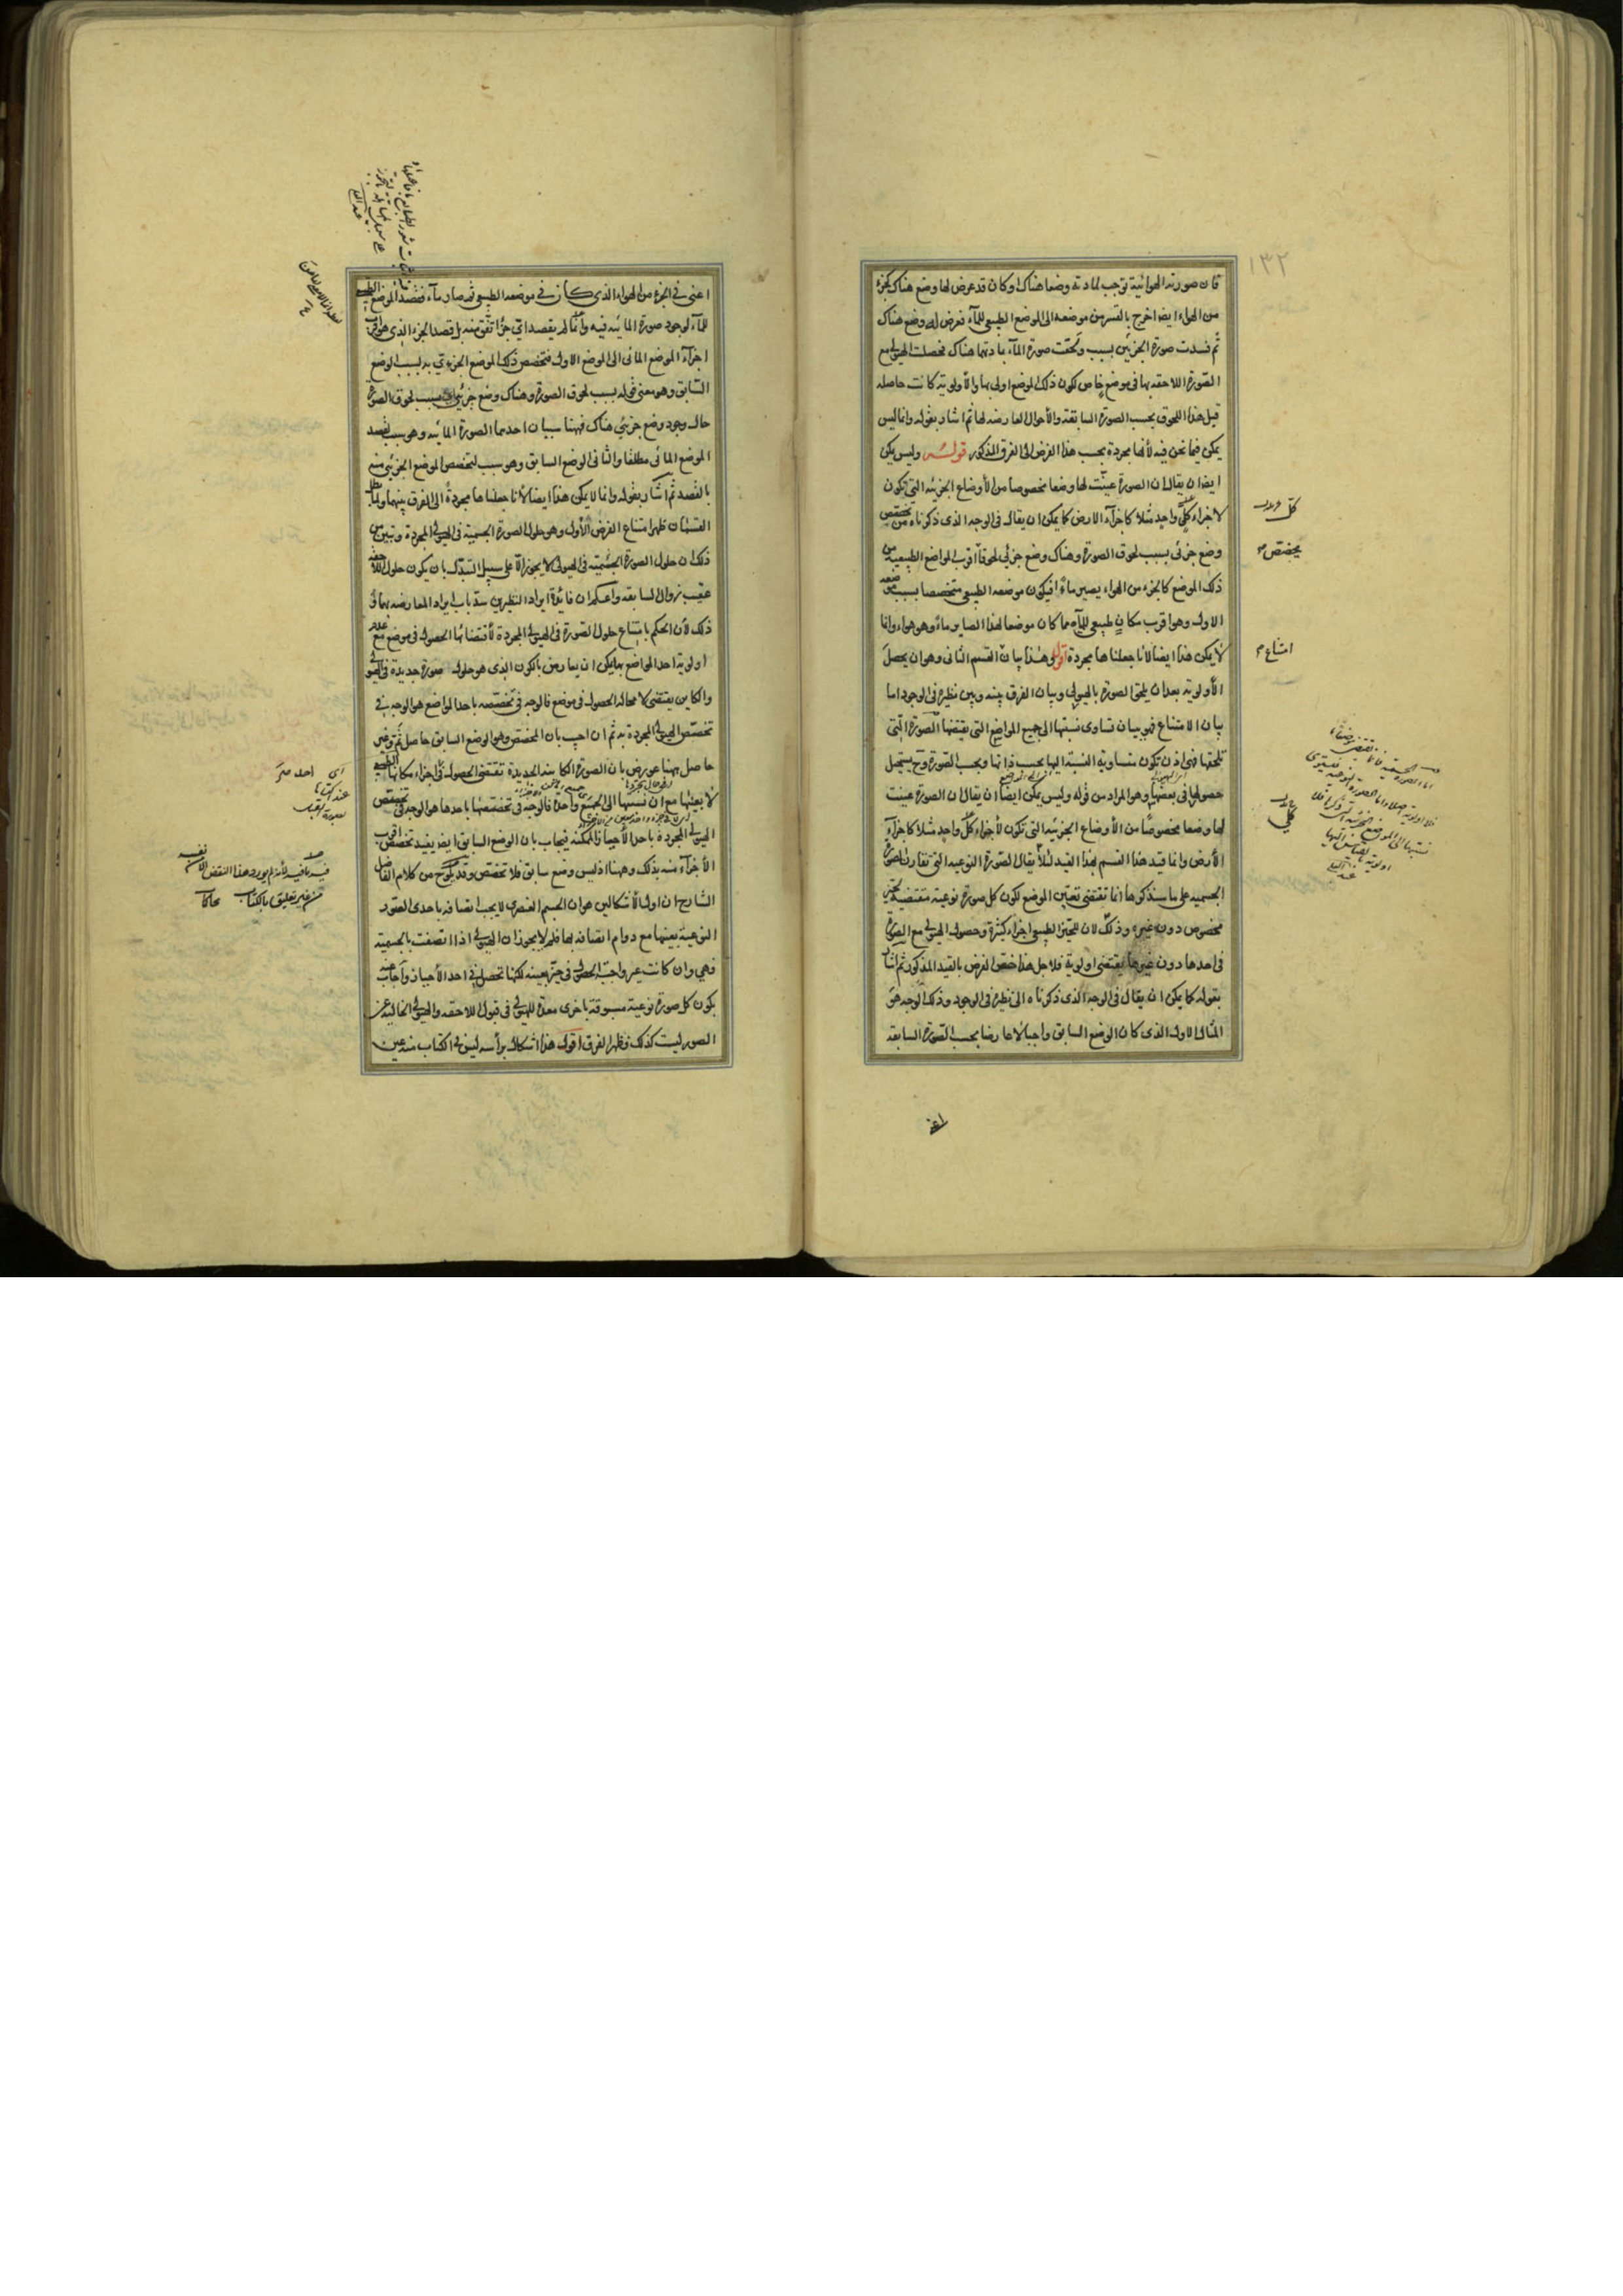 ١٣٢
فان صورته الهوائية توجب لمادته وضعا هناك او كان قد عرض لها وضع هناك كجزء
من الهواء ايضا اخرج بالقسر من موضعه الى الموضع الطبيعي للماء فعرض له وضع هناك
ثم فسدت صورة الجزئين بسبب ولحقت صورة الماء مادتهما هناك فحصلت الهيولى مع
الصورة اللاحقة بها في موضع خاص لكون ذلك الموضع اولى بها والاولوية كانت حاصله
قبل هذا اللحوق بحسب الصورة السابقة والاحوال العارضه لها ثم اشار بقوله وانما ليس
يمكن فيما نحن فيه لانها مجردة بحسب هذا الفرض الى الفرق المذكور قوله وليس يمكن
ايضا ان يقال ان الصورة عينت لها وضعا مخصوصا من الاوضاع الجزئيه التي تكون
لاجزاء كل واحد مثلا كاجزاء الارض كما يمكن ان يقال في الوجه الذي ذكرناه من تخصيص
وضع جزئي بسبب لحوق الصورة وهناك وضع جزئي لحوقا اقرب المواضع الطبيعية من
ذلك الموضع كالجزء من الهواء يصير ماء فيكون موضعه الطبيعي متخصصا بسبب موضعه
الاول وهو اقرب مكان طبيعي للماء مما كان موضعا لهذا الصاير ماء وهو هواء وانما
لا يمكن هذا ايضا لانا جعلناها مجردة اقول وهذا بيان القسم الثاني وهو ان يحصل
الاولوية بعد ان يلحق الصورة بالهيولى وبيان الفرق بينه وبين نظيره في الوجود اما
بيان الامتناع فهو بيان تساوى نسبتها الى جميع المواضع التي يقتضيها الصورة التي
تلحقها فهي اذن تكون متساوية النسبة اليها بحسب ذاتها وبحسب الصورة وح يستحيل
حصولها في بعضها وهو المراد من قوله وليس يمكن ايضا ان يقال ان الصورة عينت
لها وضعا مخصوصا من الاوضاع الجزئيه التي تكون لاجزاء كل واحد مثلا كاجزاء
الارض وانما قيد هذا القسم بهذا القيد لئلا يقال الصورة النوعيه التي تقارن الصورة
الجسميه على ما سنذكرها انما تقتضى تعيين الموضع لكون كل صورة نوعية مقتضية لحيز
مخصوص دون غيره وذلك لان للحيز الطبيعي اجزاء كثيرة وحصول الهيولى مع الصورة
في احدها دون غيرها يقتضى اولوية فلاجل هذا خصص الفرض بالقيد المذكور ثم اشار
بقوله كما يمكن ان يقال في الوجه الذي ذكرناه الى نظيره في الوجود وذلك الوجه هو
المثال الاول الذي كان الوضع السابق واجبا لا عارضا بحسب الصورة السابقه
كل واحد
يخصص
امتناع
اعنى
اعنى في الجزء من الهواء الذي كان في موضعه الطبيعي ثم صار ماء فقصد الموضع الطبيعي
للماء لوجود صورة المائيه فيه وانما لم يقصد اي جزء اتفق منه بل قصد الجزء الذي هو اقرب
اجزاء الموضع المائى الى الموضع الاول فتخصص ذلك الموضع الجزئي به بسبب الوضع
السابق وهو معنى قوله بسبب لحوق الصورة وهناك وضع جزئي اي بسبب لحوق الصورة
حال وجود وضع جزئي هناك فههنا سببان احدهما الصورة المائيه وهو سبب لقصد
الموضع المائى مطلقا والثانى الوضع السابق وهو سبب لتخصص الموضع الجزئي منه
بالقصد ثم اشار بقوله وانما لا يمكن هذا ايضا لانا جعلناها مجردة الى الفرق بينهما ولما بطل
القسمان ظهر امتناع الفرض الاول وهو حلول الصورة الجسمية في الهيولى المجردة وتبين من
ذلك ان حلول الصورة الجسميه في الهيولى لا يجوز الا على سبيل التبدل بان يكون حلول اللاحقه
عقيب زوال السابقه واعلم ان فائدة ايراد النظيرين سد باب ايراد المعارضه بهما و
ذلك لان الحكم بامتناع حلول الصورة في الهيولى المجردة لاقتضائها الحصول في موضع مع عدم
اولوية احد المواضع بها يمكن ان يعارض بالكون الذي هو حلول صورة جديدة في الهيولى
والكاين يقتضى لا محاله الحصول في موضع فالوجه في تخصصه باحد المواضع هو الوجه في
تخصص الهيولى المجردة به ثم ان اجيب بان المخصص وهو الوضع السابق حاصل ثم وغير
حاصل ههنا عورض بان الصورة الكاينه الجديدة تقتضى الحصول في اجزاء مكانها الطبيعي
لا بعينها مع ان نسبتها الى الجميع واحدة فالوجه في تخصصها باحدها هو الوجه في تخصص
الهيولى المجردة باحد الاحياز الممكنه فيجاب بان الوضع السابق ايضا يفيد تخصص اقرب
الاجزاء منه بذلك وههنا اذ ليس وضع سابق فلا تخصص وقد يلوح من كلام الفاضل
الشارح ان اول الاشكالين هو ان الجسم العنصرى لا يجب اتصافه باحدى الصور
النوعية بعينها مع دوام اتصافه بها فلم لا يجوز ان الهيولى اذا اتصفت بالجسمية
فهى وان كانت غير واجبة الحصول في حيز بعينه لكنها تحصل في احد الاحياز واجاب عنه
بكون كل صورة نوعية مسبوقة باخرى معدة للهيولى في قبول اللاحقه والهيولى الخالية عن
الصور ليست كذلك فظهر الفرق اقول هذا اشكال برأسه ليس في الكتاب منه عين
اى احد